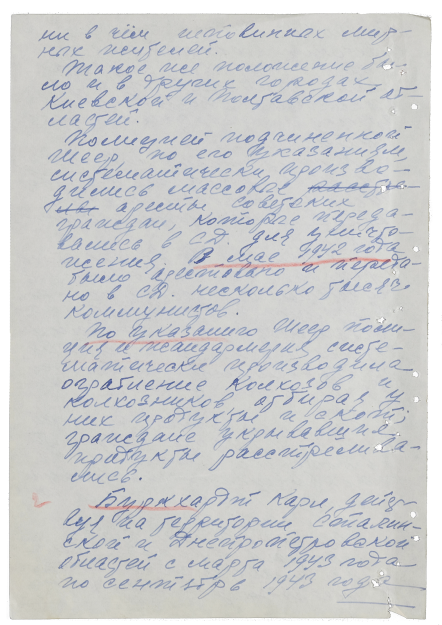 ни в чём неповинных мир-
ных жителей.
Такое же положение бы-
ло и в других городах
Киевской и Полтавской об-
ластей.
Полицией подчиненной
Шеер, по его указаниям,
систематически произво-
дились массовые
аресты советских
граждан, которые переда-
вались в СД. для уничто-
жения. В мае 1942 года
было арестовано и переда-
но в СД. несколько тысяч
коммунистов.
По указанию Шеер поли-
ция и жандармерия систе-
матически производила
ограбление колхозов и
колхозников отбирая у
них продукты и скот;
граждане укрывавшие
продукты расстрелива-
лись.
Буркхардт Карл, дейст-
вуя на территории Сталин-
ской и Днепропетровской
областей с марта 1943 года
по сентябрь 1943 года